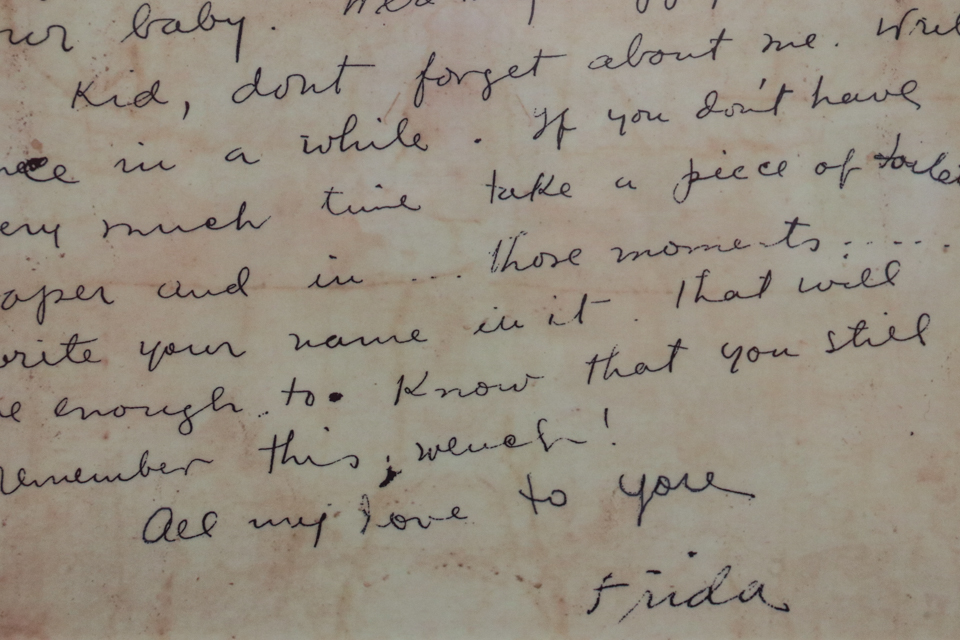 your baby.
Kid, dont forget about me. Write
once in a while. If you don't have
very much time take a piece of toilet
paper and in ... those moments .....
write your name in it. That will
be enough to know that you still
remember this wench!
All my love to you
Frida